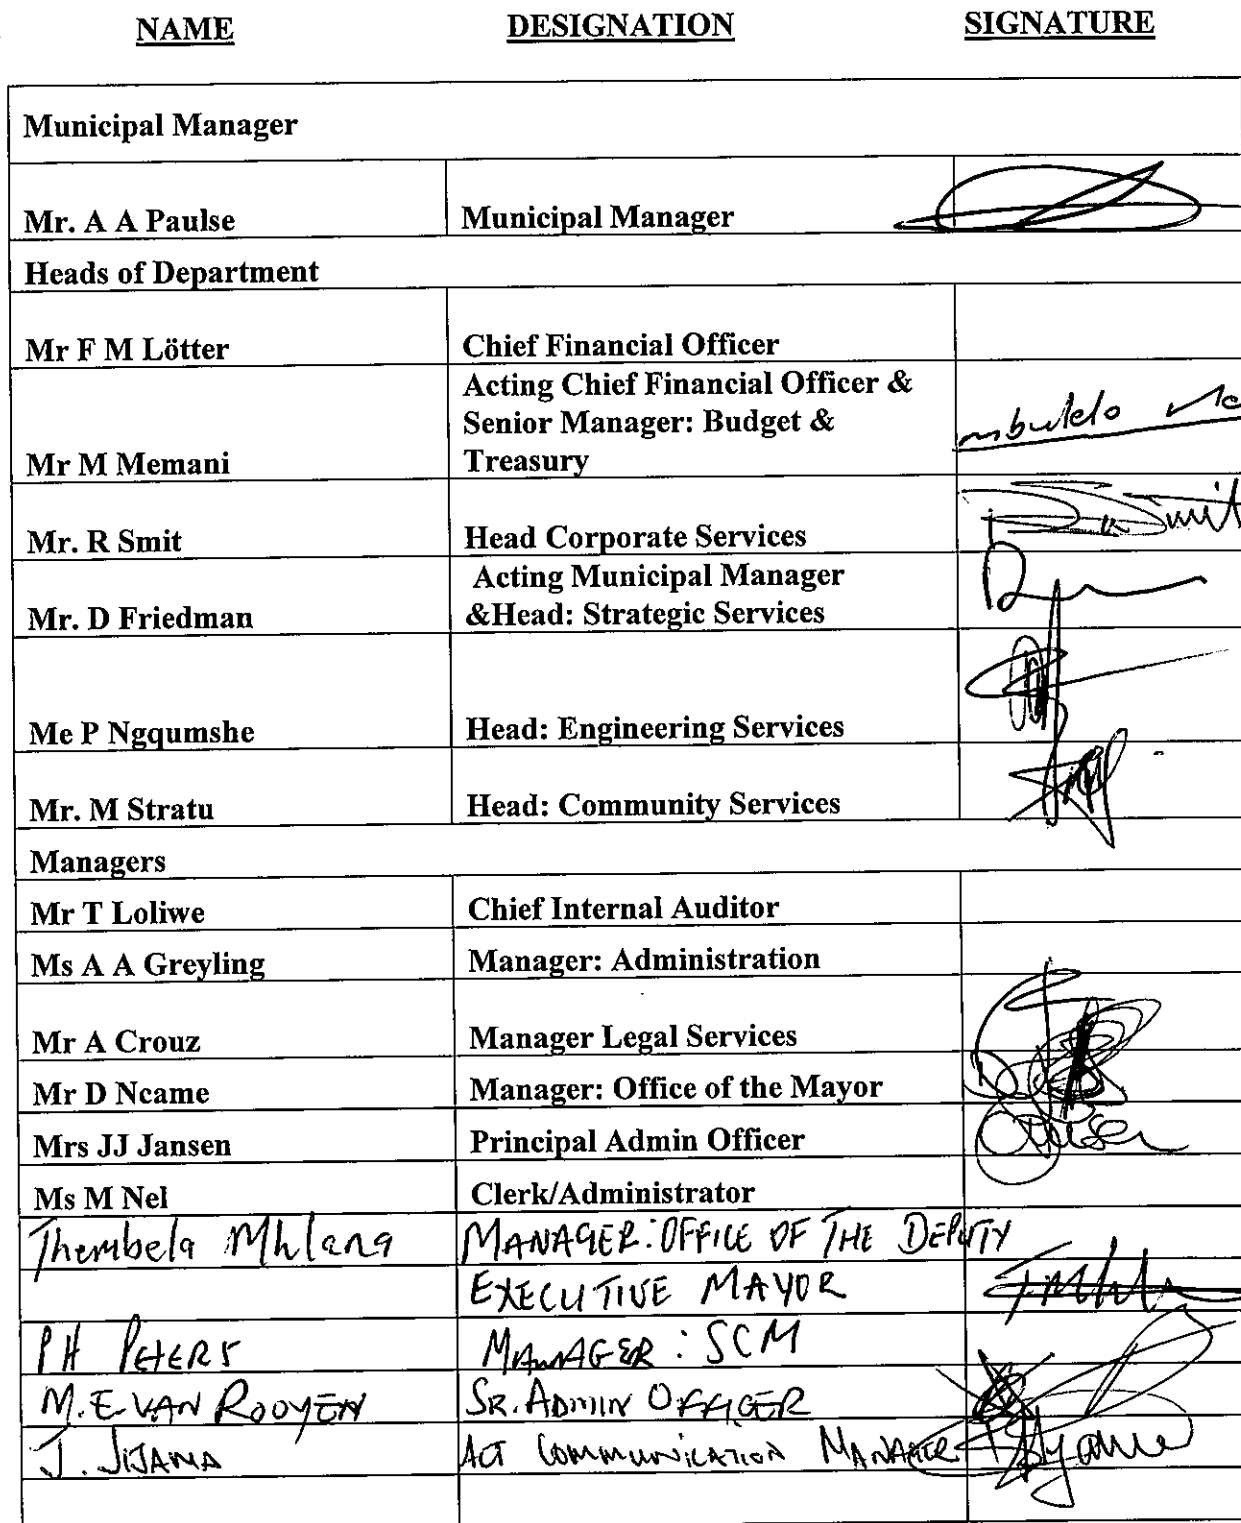 NAME DESIGNATION SIGNATURE
Municipal Manager
Mr. A A Paulse Municipal Manager
Heads of Department
Mr F M Lötter Chief Financial Officer
Acting Chief Financial Officer &
Senior Manager: Budget &
Mr M Memani Treasury
mbulelo
Mr. R Smit Head Corporate Services Smit
Acting Municipal Manager
Mr. D Friedman &Head: Strategic Services
Me P Ngqumshe Head: Engineering Services
Mr. M Stratu Head: Community Services
Managers
Mr T Loliwe Chief Internal Auditor
Ms A A Greyling Manager: Administration
Mr A Crouz Manager Legal Services
Mr D Ncame Manager: Office of the Mayor
Mrs JJ Jansen Principal Admin Officer
Ms M Nel Clerk/Administrator
Thembela Mhlana MANAGER: OFFICE OF THE DEPUTY
EXECUTIVE MAYOR
PH PETERS MANAGER: SCM
M.E. VAN ROOYEN SR. ADMIN OFFICER
J. JIJANA ACT COMMUNICATION MANAGER